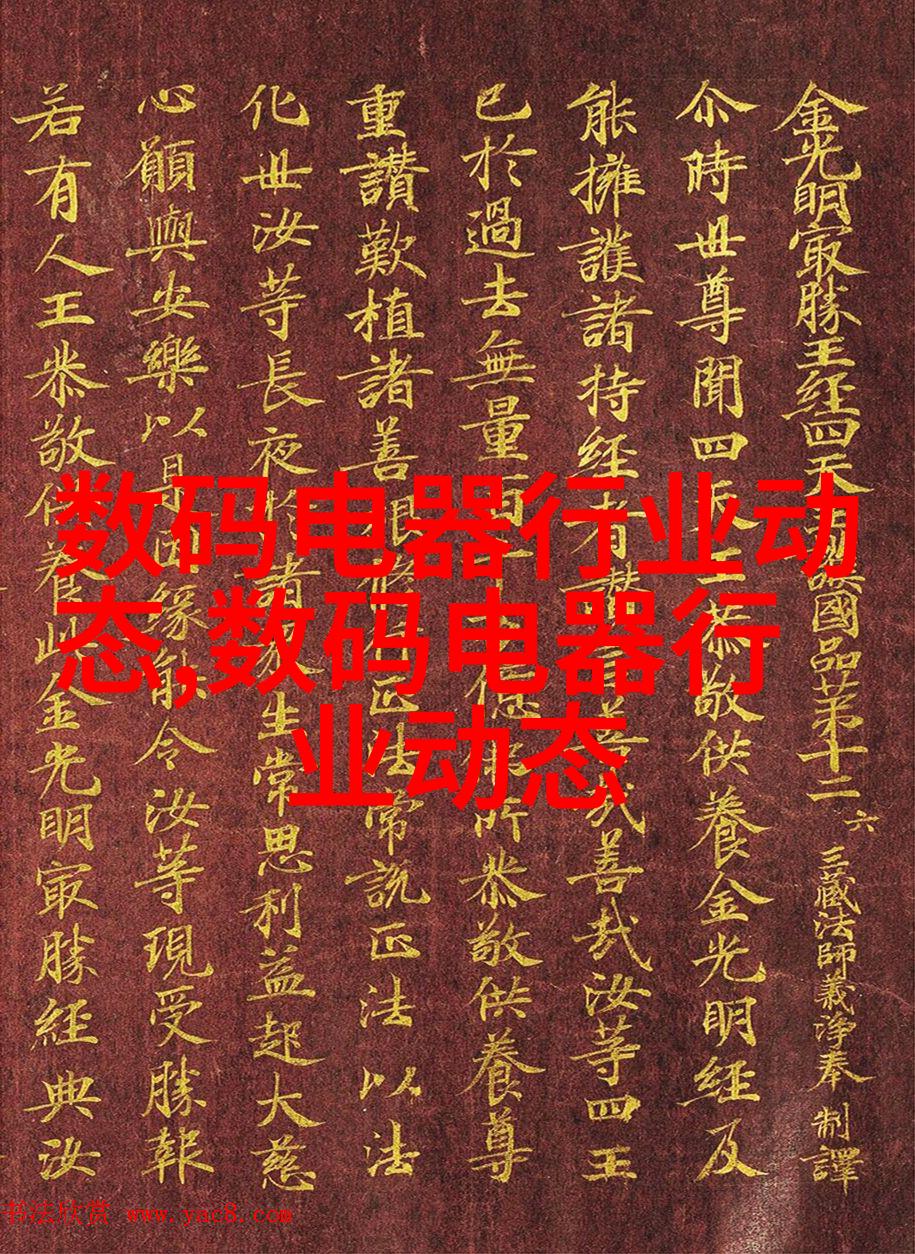 金光明冣勝王經四天王護國品苐十二 六 三藏法師義淨奉 制譯
尒時世尊聞四天王恭敬供養金光明經及
能擁護諸持經者讃善哉善哉汝等四王
已於過去無量百所恭敬供養尊
重讚歎植諸善根修行正法常說正法以法
化世汝等長夜於諸衆生常思利益起大慈
心願與安樂以是因緣能令汝等現受勝報
若有人王恭敬供養此金光明冣勝經典汝
数码电器行业动
态,数码电器行
业动态
书法欣赏 www.yac8.com